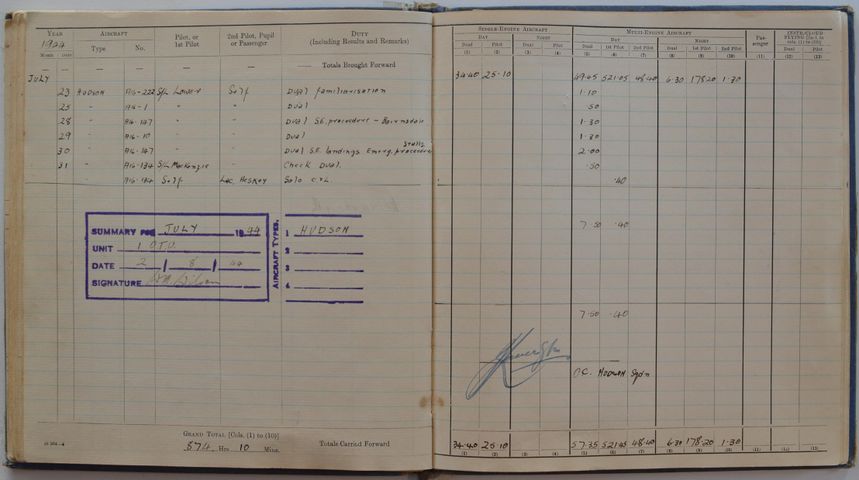 YEAR 1944 AIRCRAFT Pilot, or 1st Pilot 2nd Pilot, Pupil or Passenger DUTY (Including Results and Remarks)
Month Date Type No.
— — — — — — — Totals Brought Forward
JULY
23 HUDSON A16-222 S/L Lower Self Dual familiarisation
25 " A16-1 " " Dual
28 " A16-147 " " Dual S.E. procedure - Bairnsdale
29 " A16-10 " " Dual
30 " A16-147 " " Dual S.E. landings Emerg. procedure Stalls
31 " A16-134 S/L MacKenzie " Check Dual
" Self Lac. Heskey Solo
SUMMARY FOR JULY 1944
UNIT 1 O.T.U.
DATE 2 / 8 / 44
SIGNATURE
AIRCRAFT TYPES.
1 HUDSON
2
3
4
GRAND TOTAL [Cols. (1) to (10)]
574 Hrs 10 Mins.
Totals Carried Forward
SINGLE-ENGINE AIRCRAFT MULTI-ENGINE AIRCRAFT Pas-senger
DAY NIGHT DAY NIGHT
Dual Pilot Dual Pilot Dual 1st Pilot 2nd Pilot Dual 1st Pilot 2nd Pilot Dual Pilot
(1) (2) (3) (4) (5) (6) (7) (8) (9) (10) (11) (12) (13)
34·40 25·10 49·45 521·05 48·40 6·30 178·20 1·30
1·10
50
1·30
1·30
2·00
·50
·40
7·50 ·40
7·50 ·40
O.C. HUDSON Sqdn
34·40 25·10 57·35 521·45 48·40 6·30 178·20 1·30
(1) (2) (3) (4) (5) (6) (7) (8) (9) (10) (11) (12) (13)